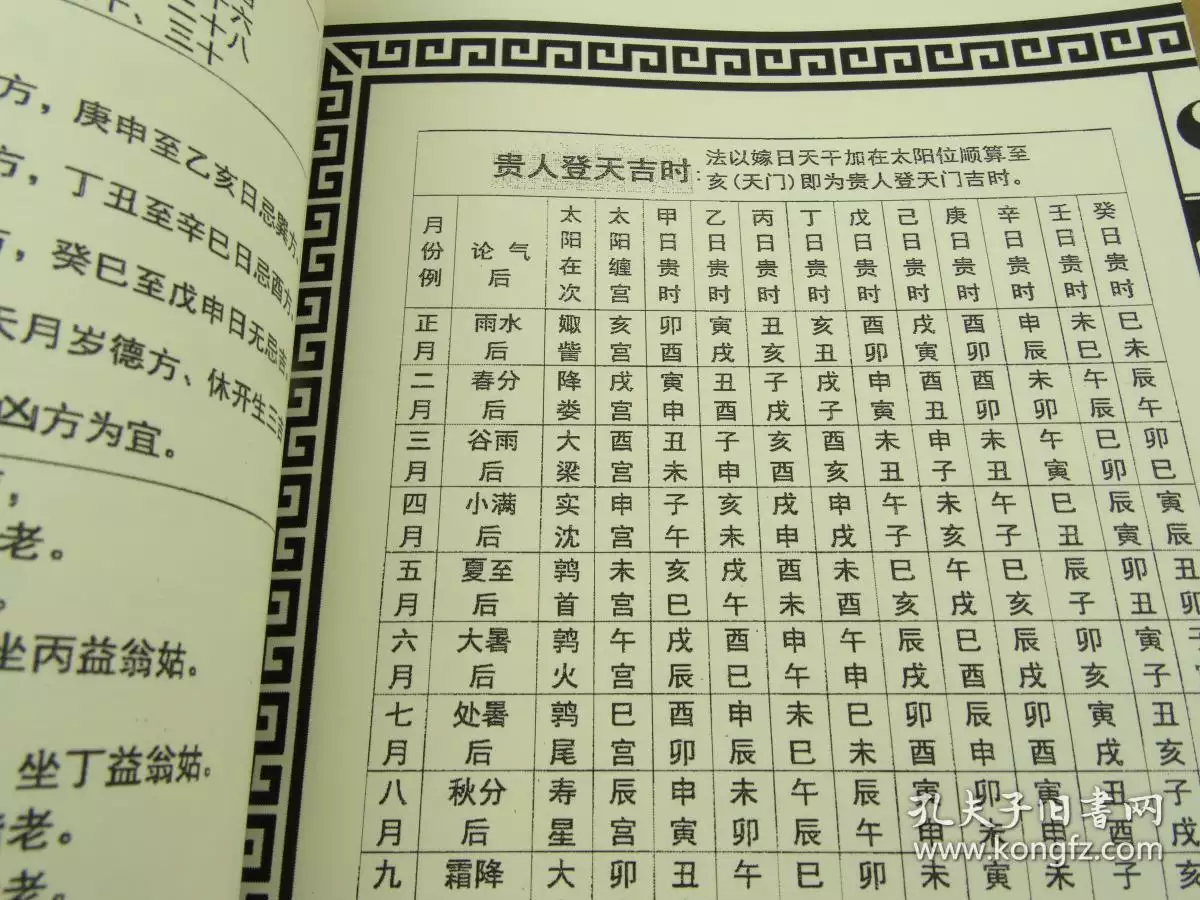 六
二十八
十、三十
方，庚申至乙亥日忌巽方、
方，丁丑至辛巳日忌酉方、
癸巳至戊申日无忌吉
天月岁德方、休开生三吉
凶方为宜。
老。
坐丙益翁姑。
坐丁益翁姑。
老。
老。
贵人登天吉时：法以嫁日天干加在太阳位顺算至
亥（天门）即为贵人登天门吉时。
月份例 论气后 太阳在次 太阳缠宫 甲日贵时 乙日贵时 丙日贵时 丁日贵时 戊日贵时 己日贵时 庚日贵时 辛日贵时 壬日贵时 癸日贵时
正 雨水 娵 亥 卯 寅 丑 亥 酉 戌 酉 申 未 巳
月 后 訾 宫 酉 戌 亥 丑 卯 寅 卯 辰 巳 未
二 春分 降 戌 寅 丑 子 戌 申 酉 酉 未 午 辰
月 后 娄 宫 申 酉 戌 子 寅 丑 卯 卯 辰 午
三 谷雨 大 酉 丑 子 亥 酉 未 申 未 午 巳 卯
月 后 梁 宫 未 申 酉 亥 丑 子 丑 寅 卯 巳
四 小满 实 申 子 亥 戌 申 午 未 午 巳 辰 寅
月 后 沈 宫 午 未 申 戌 子 亥 子 丑 寅 辰
五 夏至 鹑 未 亥 戌 酉 未 巳 午 巳 辰 卯 丑
月 后 首 宫 巳 午 未 酉 亥 戌 亥 子 丑 卯
六 大暑 鹑 午 戌 酉 申 午 辰 巳 辰 卯 寅
月 后 火 宫 辰 巳 午 申 戌 酉 戌 亥 子
七 处暑 鹑 巳 酉 申 未 巳 卯 辰 卯 寅 丑
月 后 尾 宫 卯 辰 巳 未 酉 申 酉 戌 亥
八 秋分 寿 辰 申 未 午 辰 寅 卯 寅 丑 子
月 后 星 宫 寅 卯 辰 午 申 未 申 酉 戌
九 霜降 大 卯 丑 午 巳 卯 未 寅 未 子 亥
孔夫子旧书网
www.kongfz.com